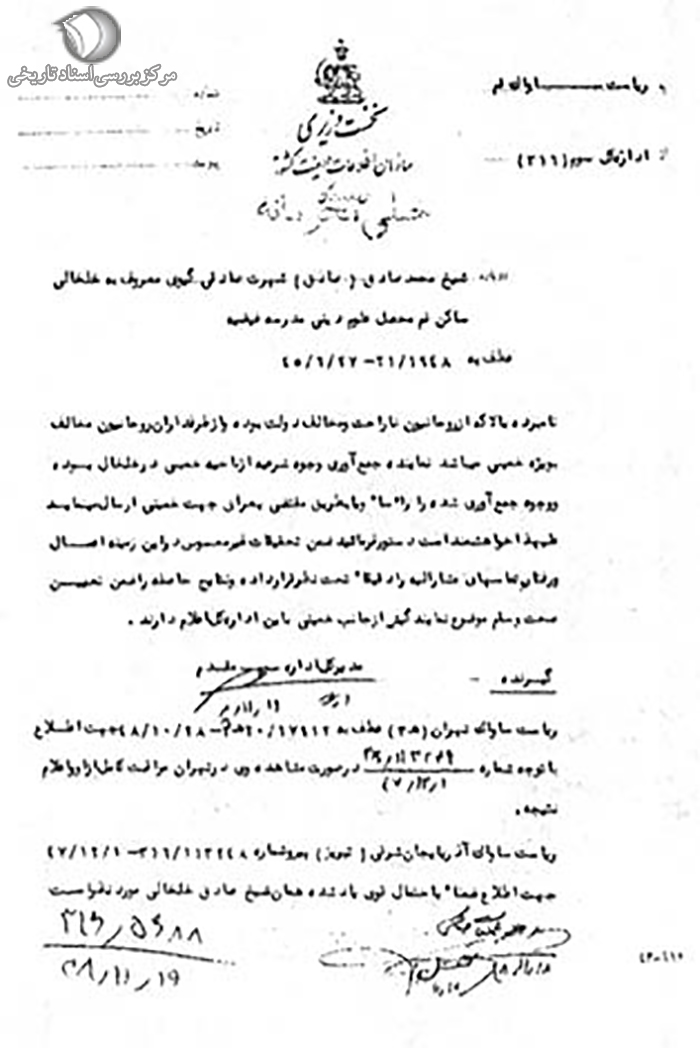 مرکز بررسی اسناد تاریخی
به ریاست ساواک قم
از اداره کل سوم (۳۱۶)
نخست وزیری
سازمان اطلاعات و امنیت کشور
شماره
تاریخ
پیوست
درباره شیخ محمد صادق (صادق) شهرت صادقی گیوی معروف به خلخالی
ساکن قم محصل علوم دینی مدرسه فیضیه
عطف به ۲۱/۱۹۴۸ – ۴۵/۶/۲۷
نامبرده بالا که از روحانیون ناراحت و مخالف دولت بوده و از طرفداران روحانیون مخالف
بویژه خمینی میباشد نماینده جمع آوری وجوه شرعیه از ناحیه خمینی در خلخال بوده
و وجوه جمع آوری شده را راسا" و یا بطریق مقتضی بعراق جهت خمینی ارسال مینماید
علیهذا خواهشمند است دستور فرمائید ضمن تحقیقات غیر محسوس در این زمینه اعمال
و رفتار و تماسهای مشارالیه را دقیقا" تحت نظر قرار داده و نتایج حاصله را ضمن تعیین
صحت و سقم موضوع نمایندگیش از جانب خمینی باین اداره کل اعلام دارند .
مدیر کل اداره سوم مقدم
گیرنده –
ریاست ساواک تهران (۳ه) عطف به ۲۰/۱۷۴۱۲ه۳ – ۴۸/۱۰/۲۸ جهت اطلاع
با توجه شماره در صورت مشاهده وی در تهران مراقبت کامل از او و اعلام
نتیجه .
ریاست ساواک آذربایجان شرقی (تبریز) پیرو شماره ۳۱۶/۱۱۳۲۴۸ – ۴۷/۱۲/۱
جهت اطلاع ضمنا" باحتمال قوی یاد شده همان شیخ صادق خلخالی مورد نظر است
۳۱۶/۵۶۸۸
۴۸/۱۱/۱۹